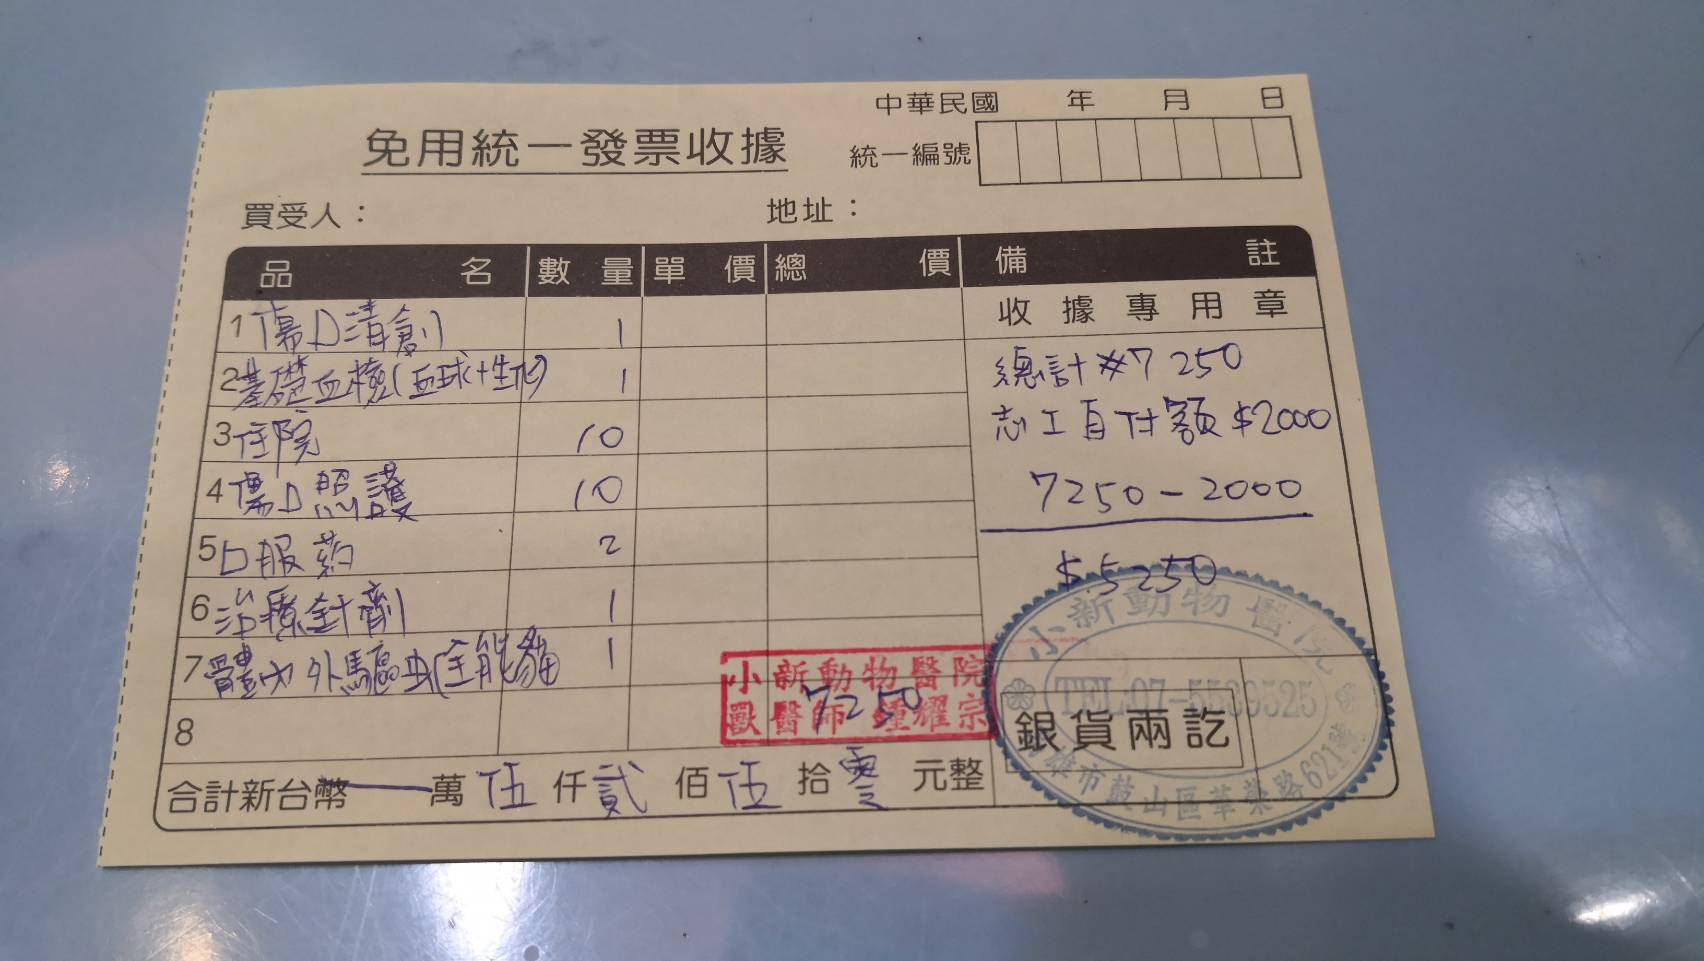 中華民國 年 月 日
免用統一發票收據
統一編號
買受人： 地址：
品名 數量 單價 總價 備註
收據專用章
1 傷口清創 1
2 基礎血檢(血球+生化) 1
3 住院 10
4 傷口照護 10
5 口服葯 2
6 治療針劑 1
7 體內外驅虫(全能貓 1
8 7250
總計 #7250
志工自付額 $2000
7250-2000
$5250
小新動物醫院
獸醫師 鍾耀宗
小新動物醫院
TEL:07-5539525
高雄市鼓山區華榮路621號
銀貨兩訖
合計新台幣 萬 伍 仟 貳 佰 伍 拾 零 元整